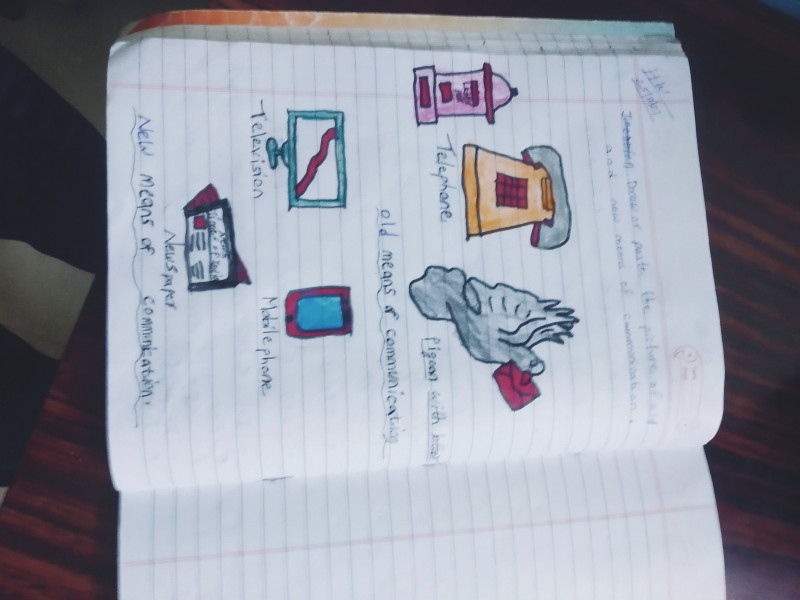 Draw or paste the picture of old
and new means of communication.
Telephone
Pigeon with
old means of communicating
Television
Mobile phone
News
Newspaper
New means of communication.